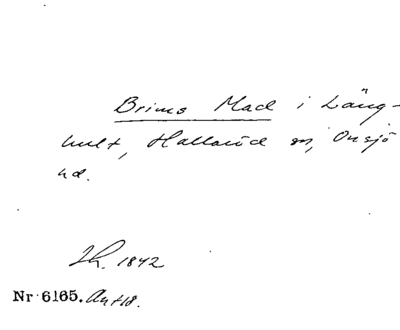 Brims Mad i Läng-
hult, Halland sn, Onsjö
hd.
Th. 1842
Nr 6165. Ant18.